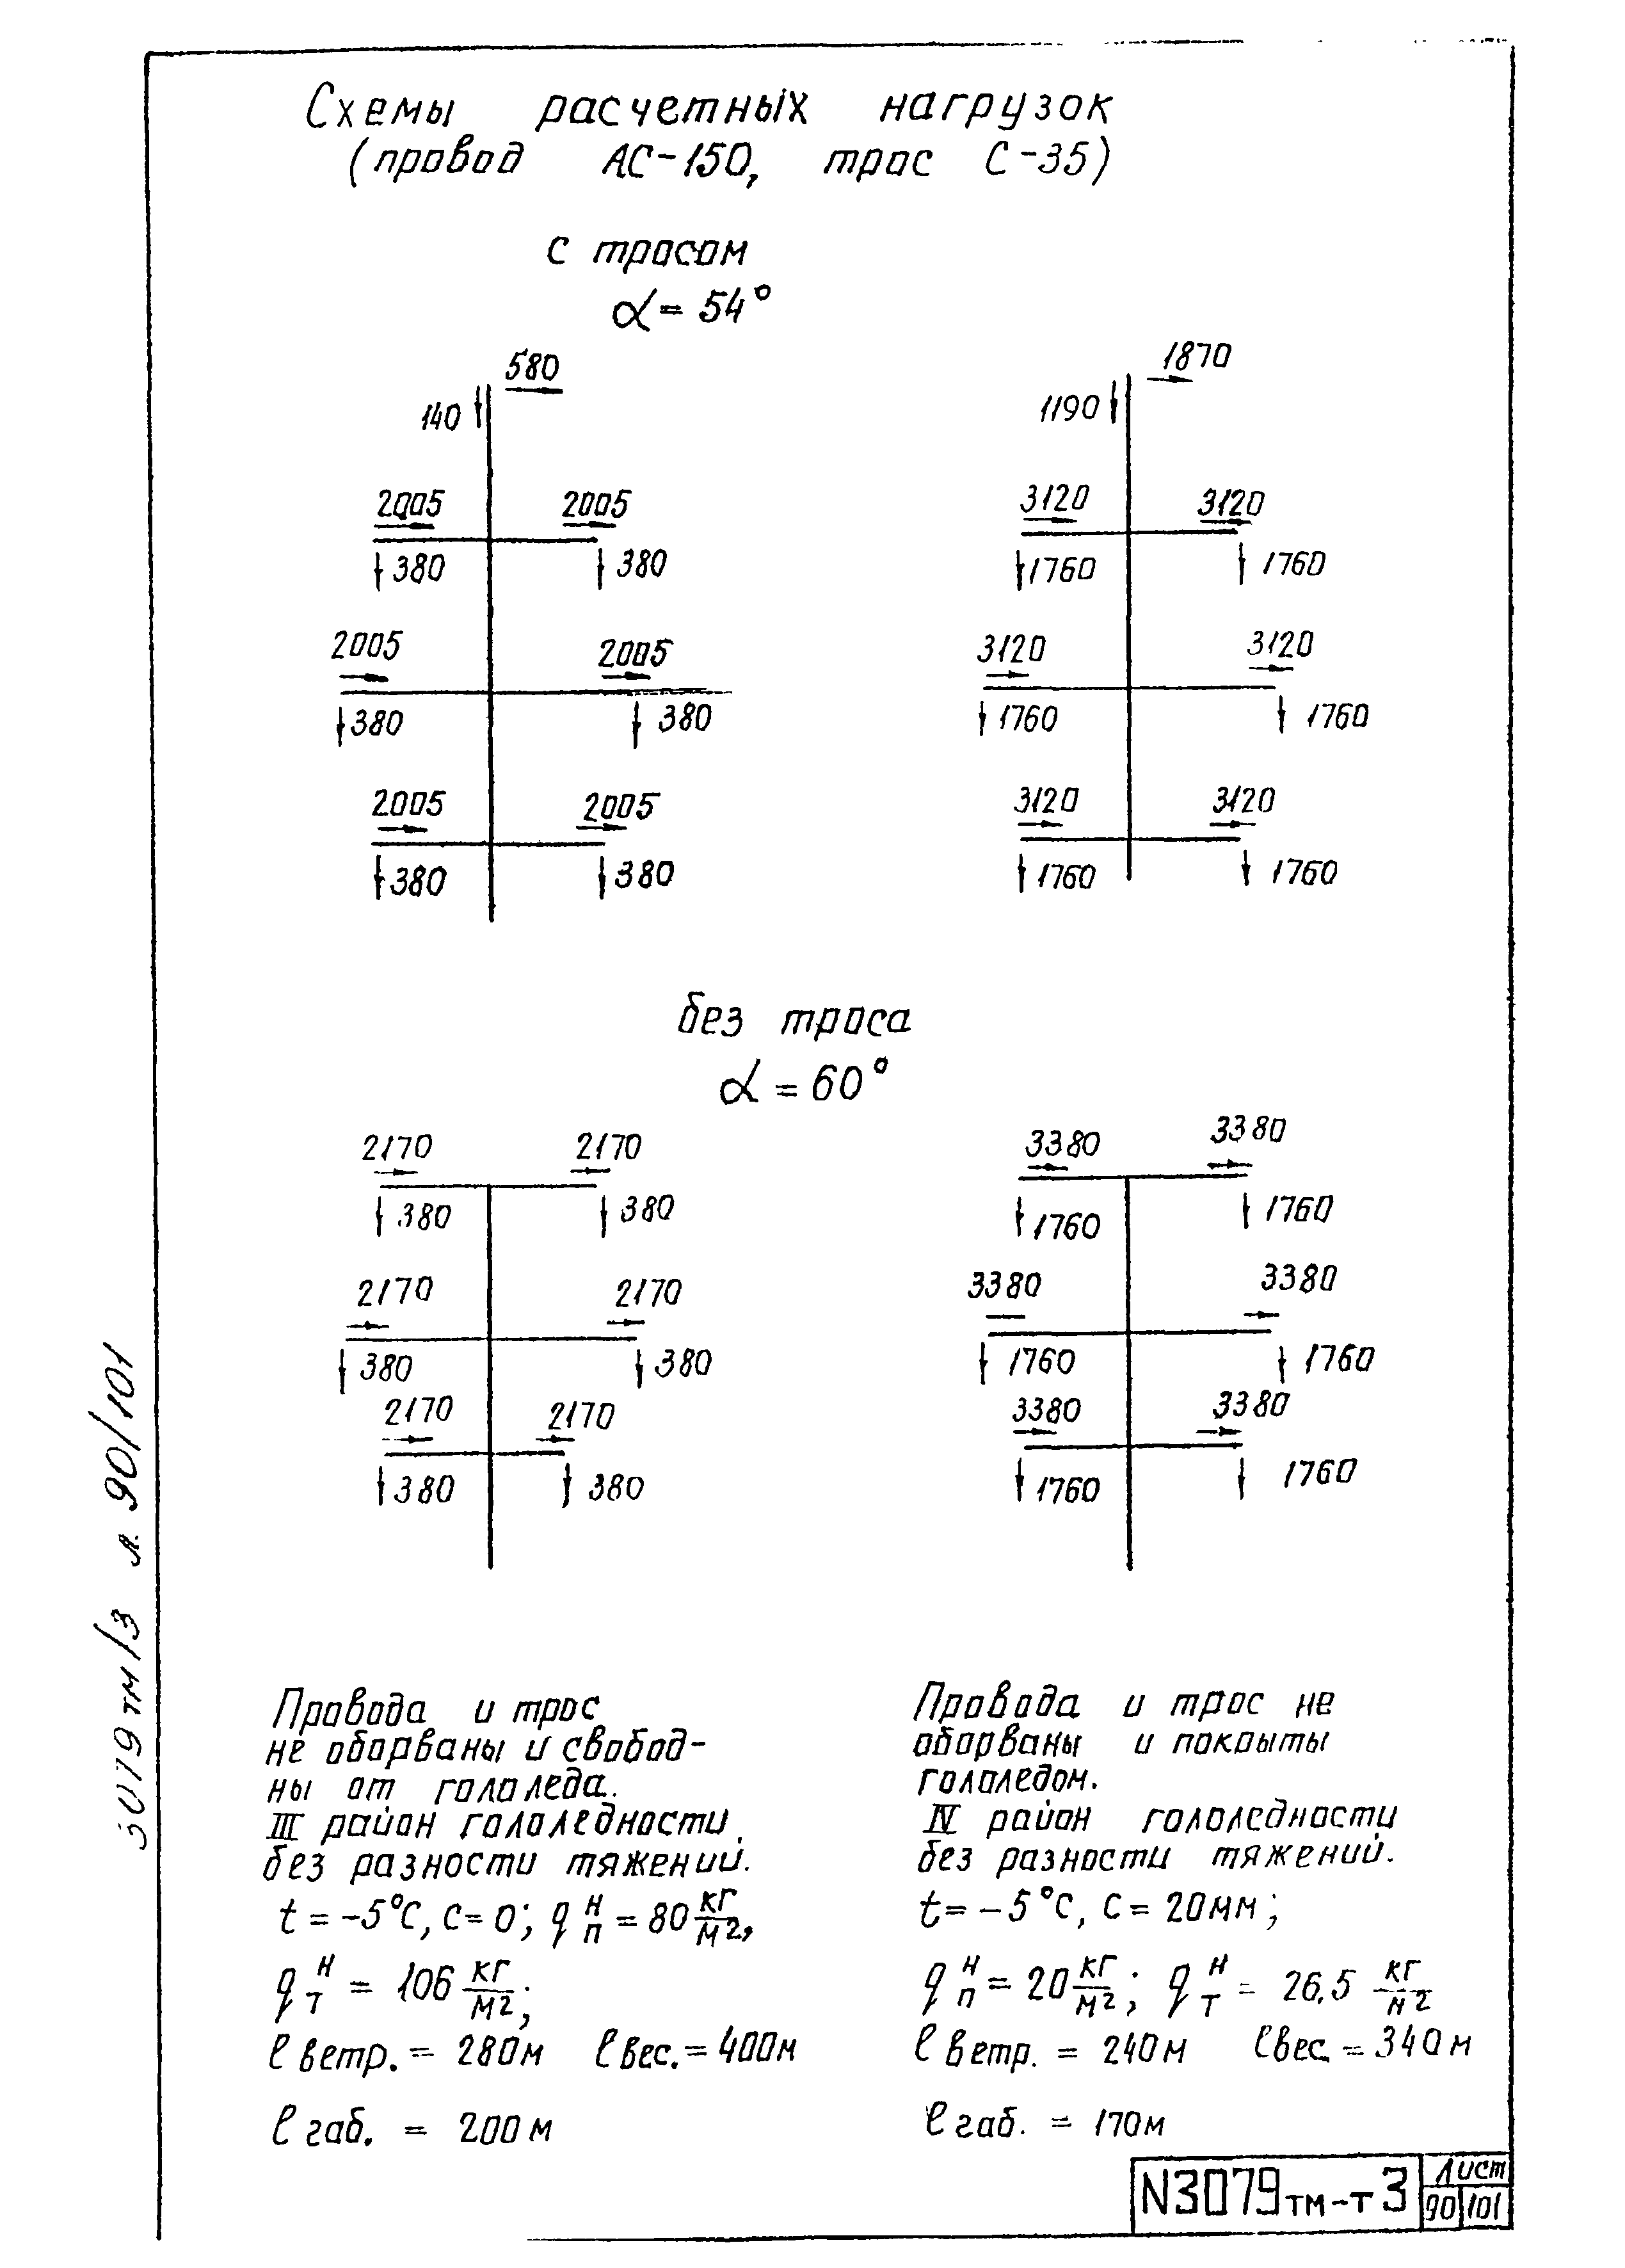 Схемы расчетных нагрузок
(провод АС-150, трос С-35)
с тросом
α = 54°
580
140
2005 2005
380 380
2005 2005
380 380
2005 2005
380 380
1870
1190
3120 3120
1760 1760
3120 3120
1760 1760
3120 3120
1760 1760
без троса
α = 60°
2170 2170
380 380
2170 2170
380 380
2170 2170
380 380
3380 3380
1760 1760
3380 3380
1760 1760
3380 3380
1760 1760
Провода и трос
не оборваны и свобод-
ны от гололеда.
III район гололедности
без разности тяжений.
t = -5°С, С = 0; q н п = 80 кг/м2,
q н т = 106 кг/м2;
l ветр. = 280м l вес. = 400м
l габ. = 200м
Провода и трос не
оборваны и покрыты
гололедом.
IV район гололедности
без разности тяжений.
t = -5°С, С = 20мм;
q н п = 20 кг/м2; q н т = 26,5 кг/м2
l ветр. = 240м l вес = 340м
l габ. = 170м
3079тм/3 л. 90/101
N3079тм-т3
Лист
90 101